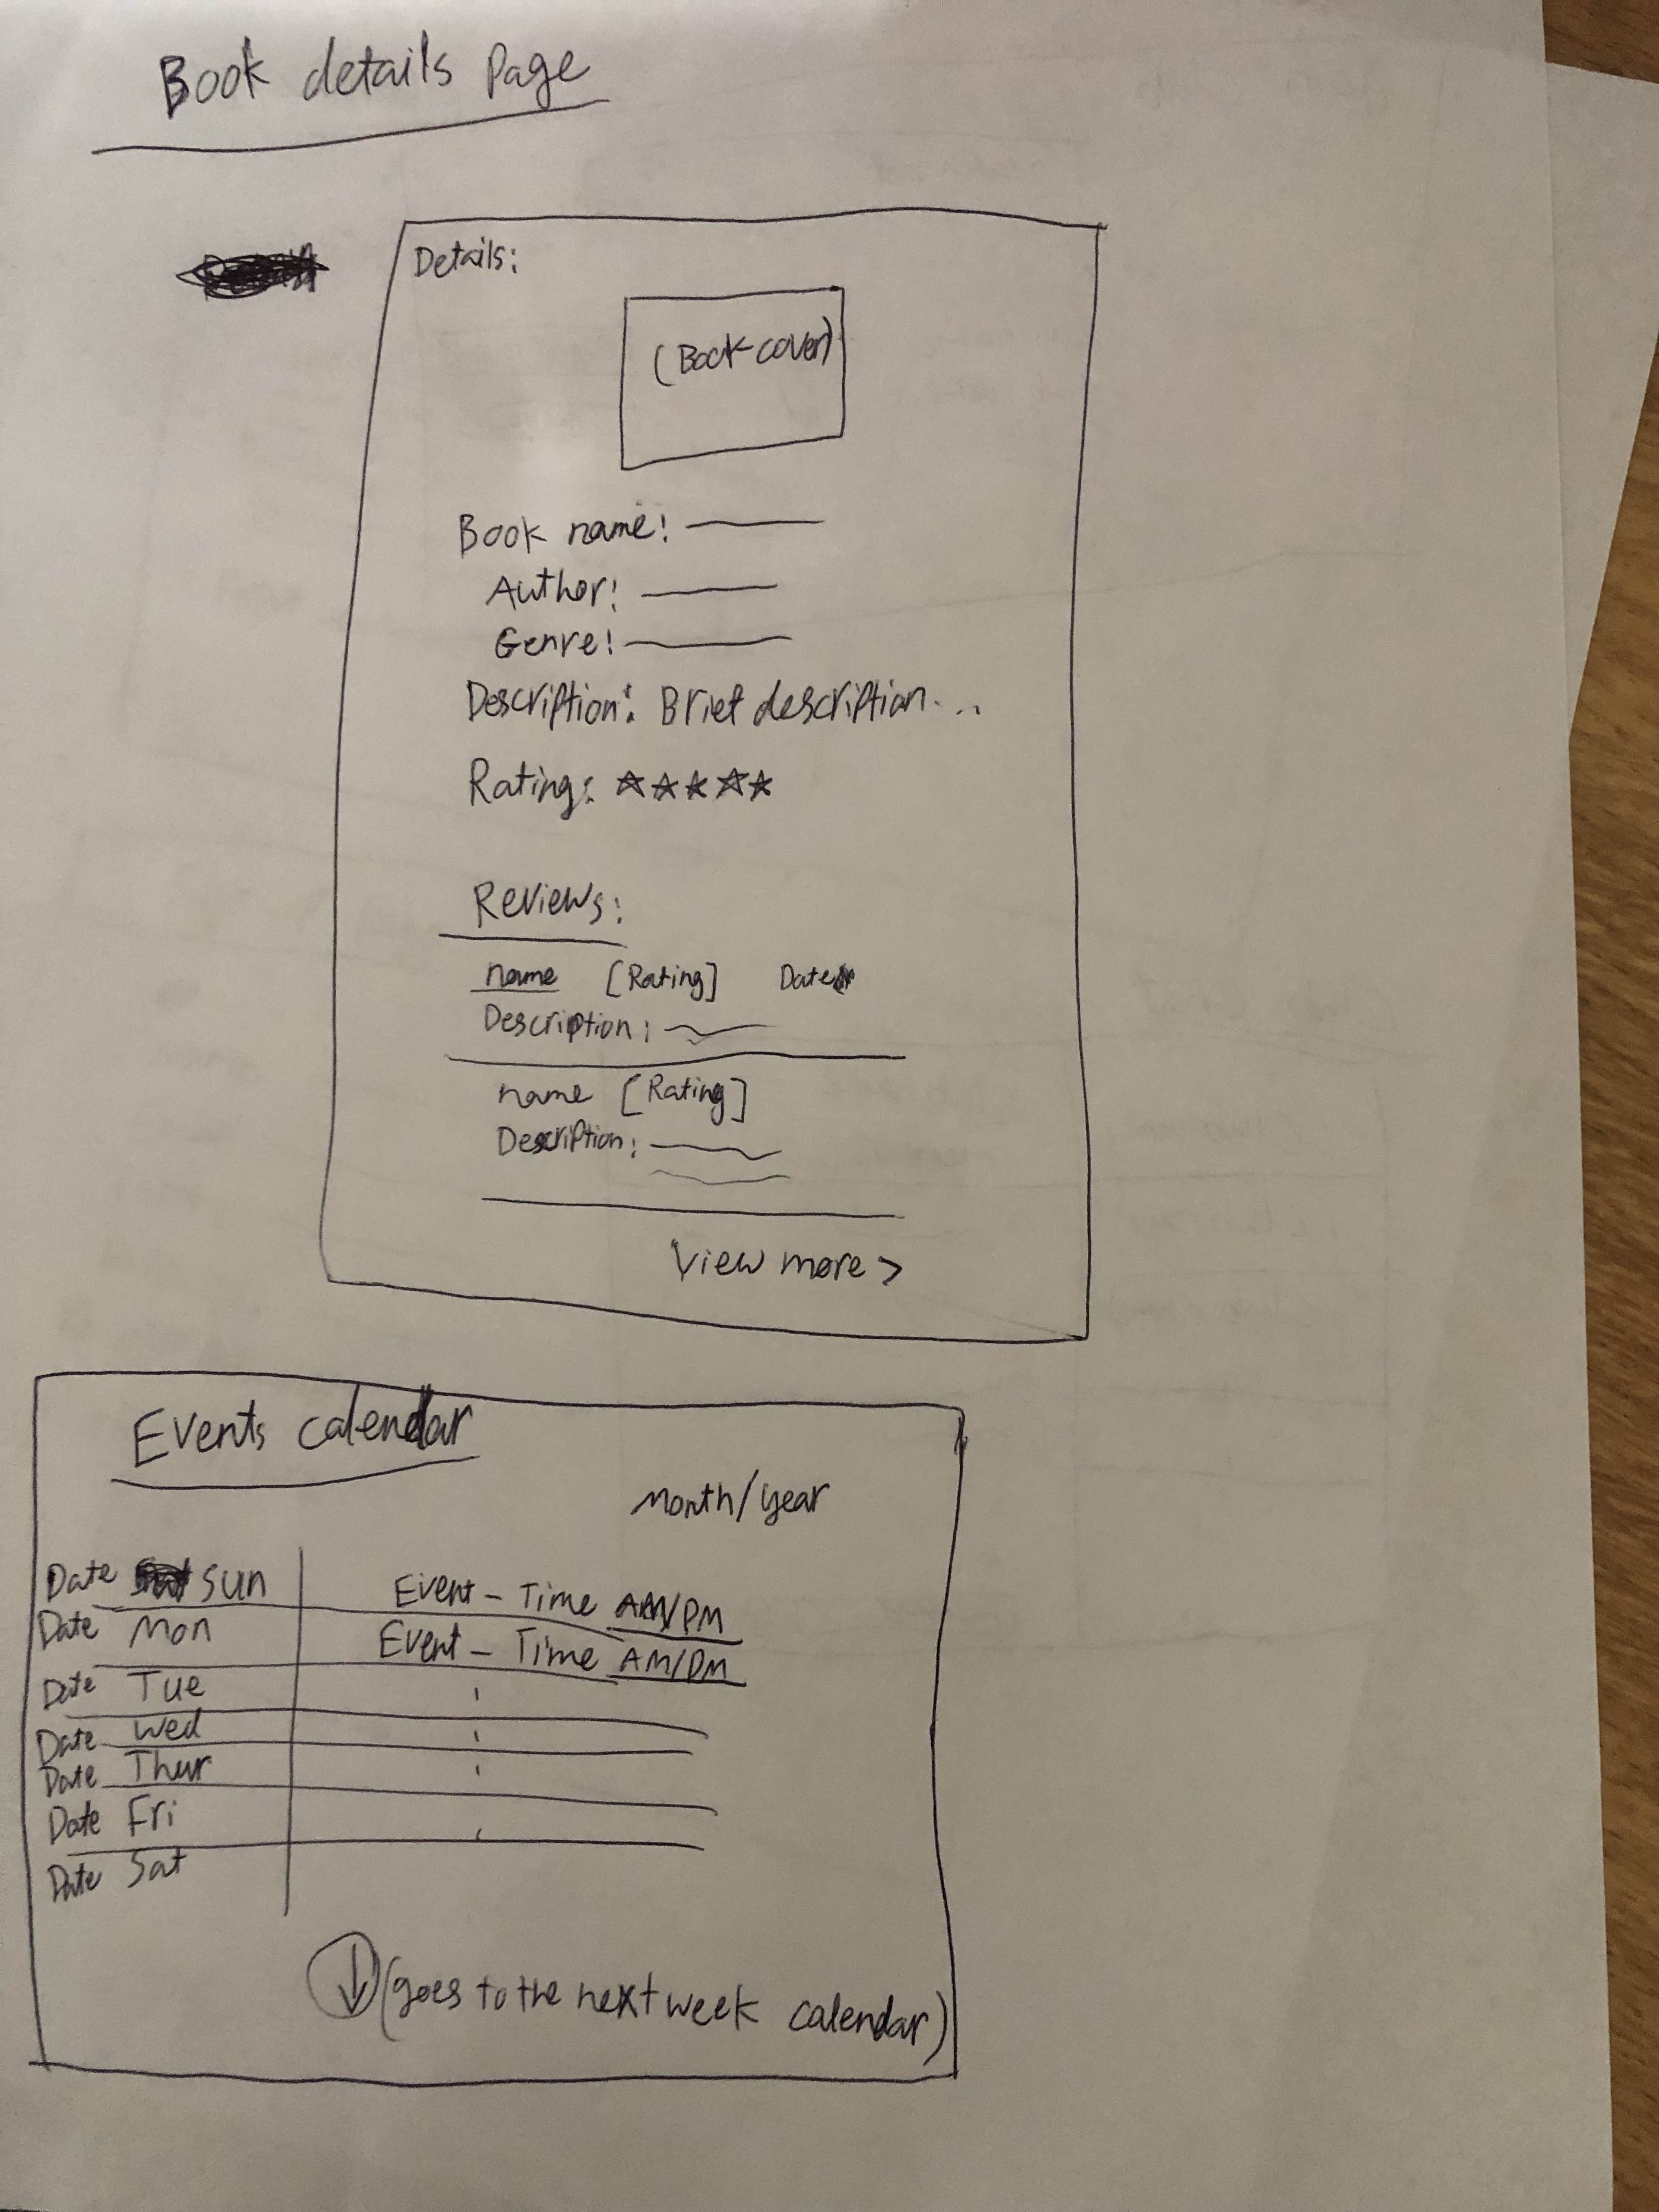 Book details Page
Details:
(Book cover)
Book name:
Author:
Genre:
Description: Brief description...
Rating: ☆☆☆☆☆
Reviews:
name [Rating] Date
Description:
name [Rating]
Description:
View more >
Events calendar
Month/year
Date Sun Event - Time AM/PM
Date Mon Event - Time AM/PM
Date Tue
Date Wed
Date Thur
Date Fri
Date Sat
↓ (goes to the next week calendar)